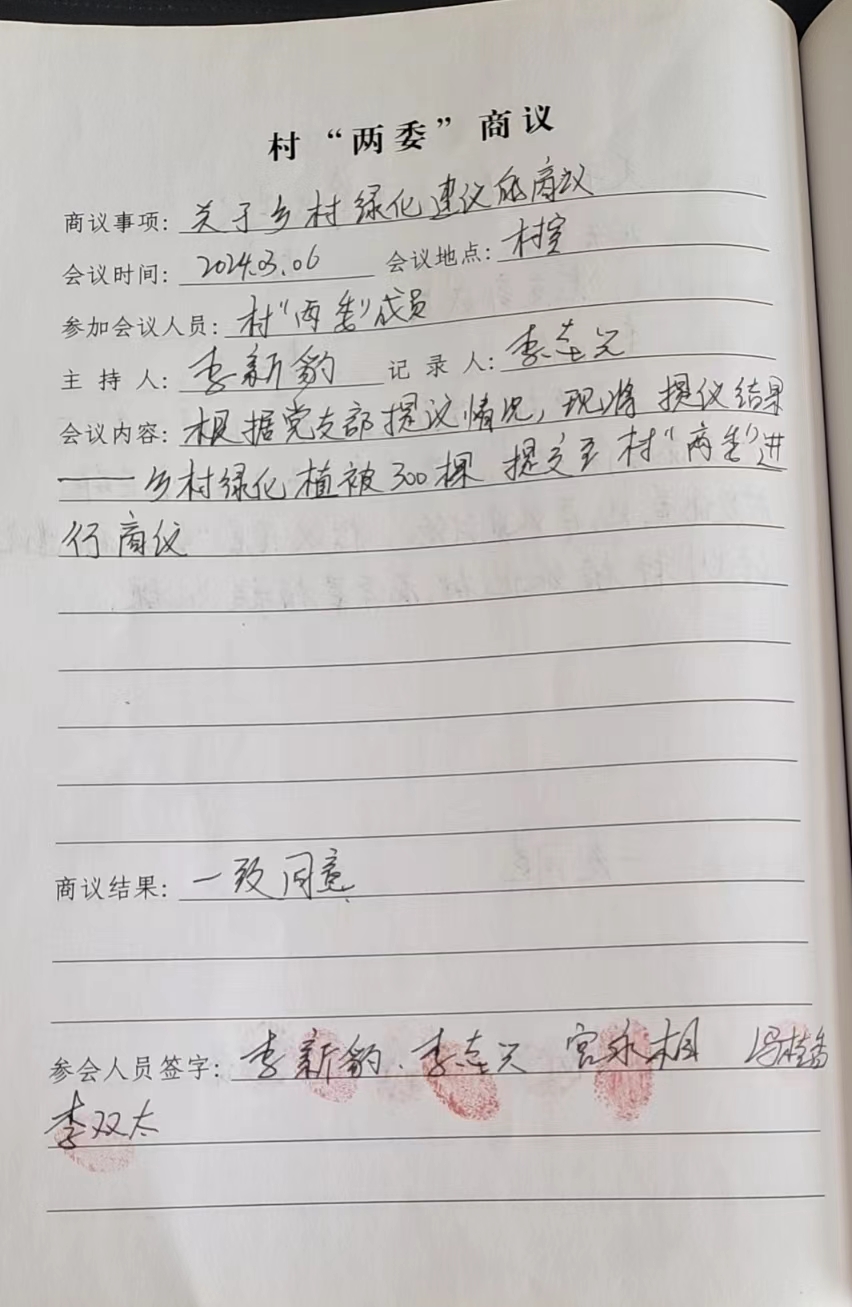 村“两委”商议
商议事项：关于乡村绿化建议的商议
会议时间：2024.03.06 会议地点：村室
参加会议人员：村“两委”成员
主持人：李新豹 记录人：李志兴
会议内容：根据党支部提议情况，现将提议结果
——乡村绿化植被300棵 提交至村“两委”进
行商议
商议结果：一致同意
参会人员签字：李新豹、李志兴 宫永相
李双太